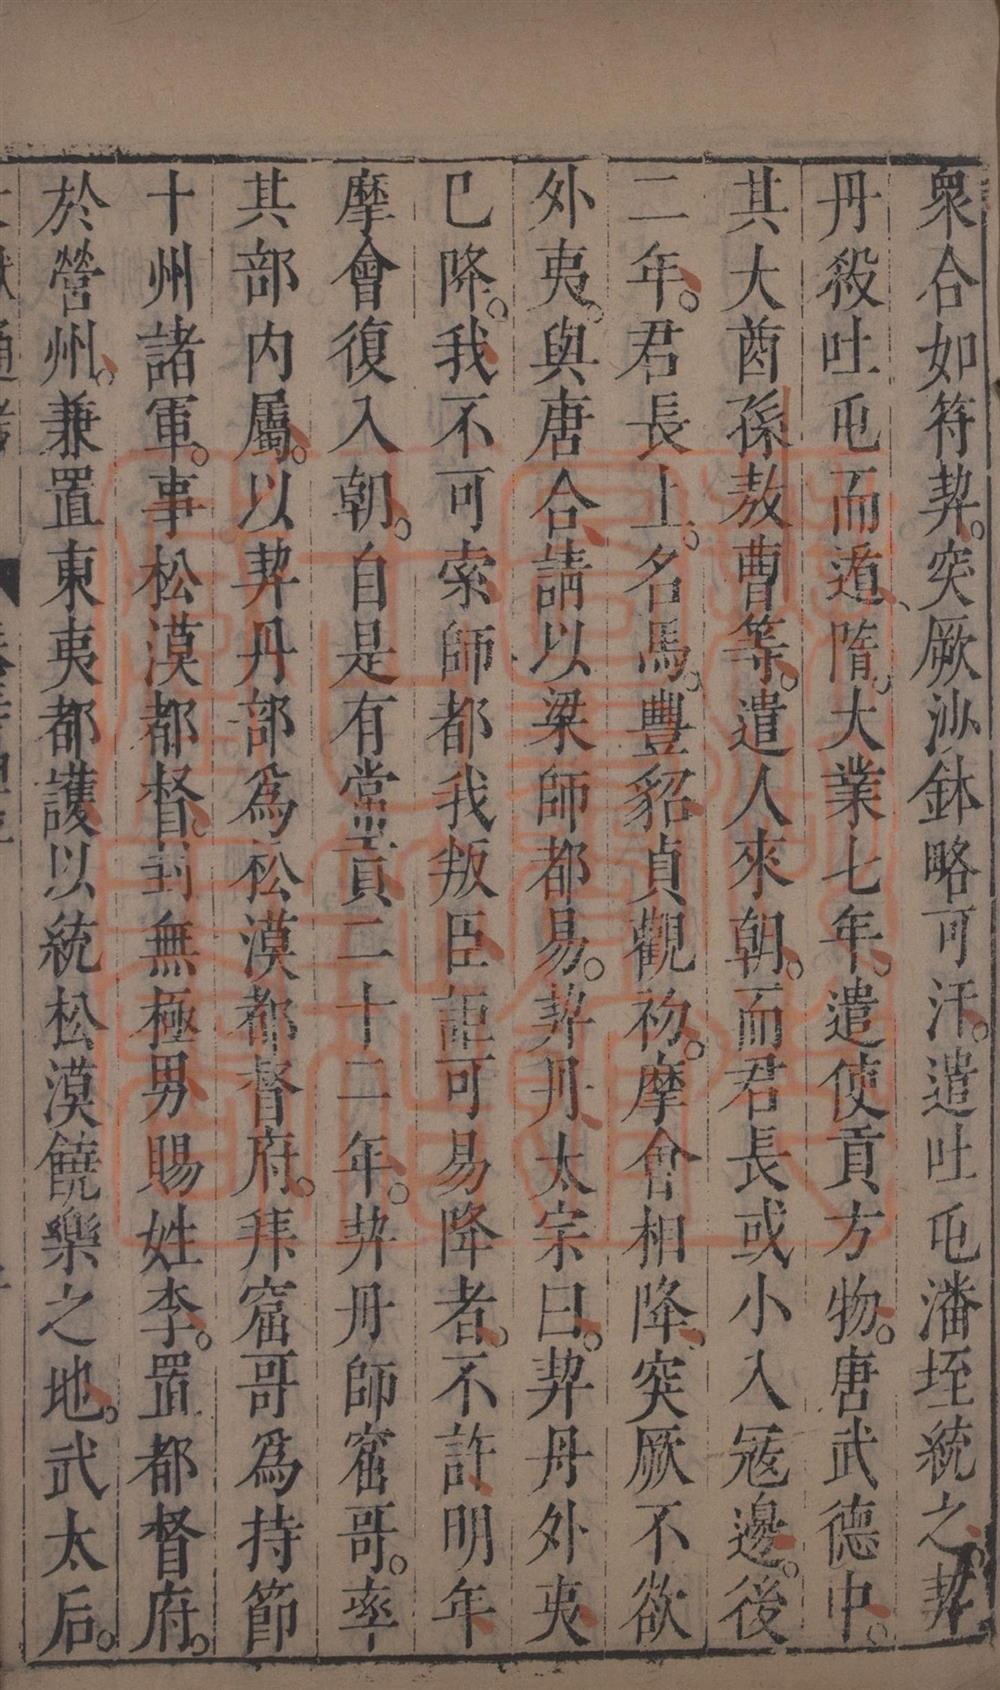 衆合如符契突厥沙鉢略可汗遣吐屯潘垤統之契
丹殺吐屯而遁隋大業七年遣使貢方物唐武德中
其大酋孫敖曹等遣人來朝而君長或小入寇邊後
二年君長上名馬豐貂貞觀初摩會相降突厥不欲
外夷與唐合請以梁師都易契丹太宗曰契丹外夷
已降我不可索師都我叛臣詎可易降者不許明年
摩會復入朝自是有常貢二十二年契丹師窟哥率
其部內屬以契丹部爲松漠都督府拜窟哥爲持節
十州諸軍事松漠都督封無極男賜姓李置都督府
於營州兼置東夷都護以統松漠饒樂之地武太后